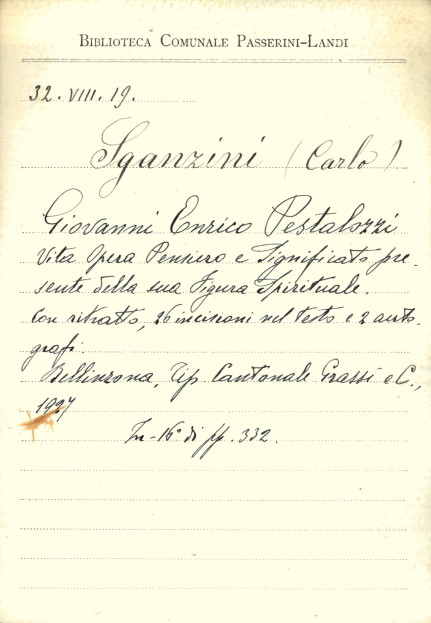 BIBLIOTECA COMUNALE PASSERINI-LANDI
32. VIII. 19.
Sganzini (Carlo)
Giovanni Enrico Pestalozzi
Vita Opera Pensiero e Significato pre-
sente della sua Figura Spirituale.
Con ritratto, 26 incisioni nel testo e 2 auto-
grafi.
Bellinzona, Tip. Cantonale Grassi e C.,
1927
In-16° di pp. 332.